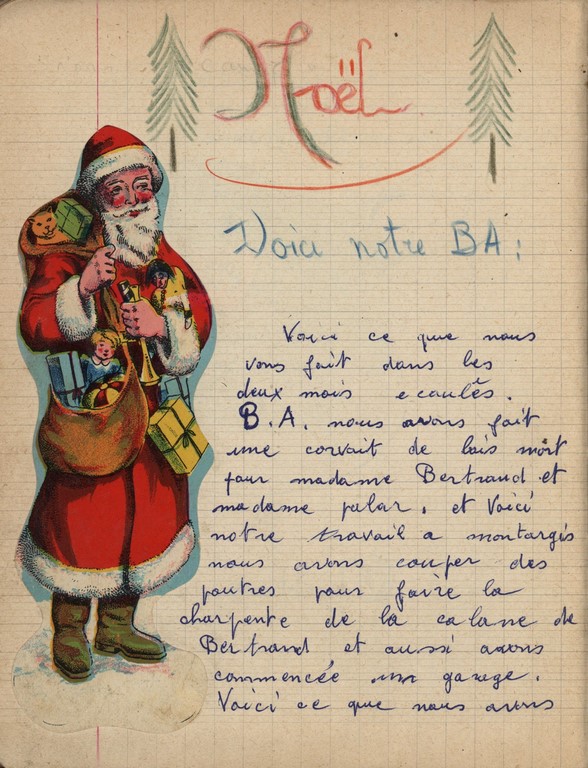 Noël
Voici notre BA :
Voici ce que nous
vous fait dans les
deux mois ecoulés.
B.A. nous avons fait
une corvait de bois mort
pour madame Bertrand et
madame palar, et Voici
notre travail a montargis
nous avons couper des
poutres pour faire la
charpente de la cabane de
Bertrand et aussi avons
commencée un garage.
Voici ce que nous avons